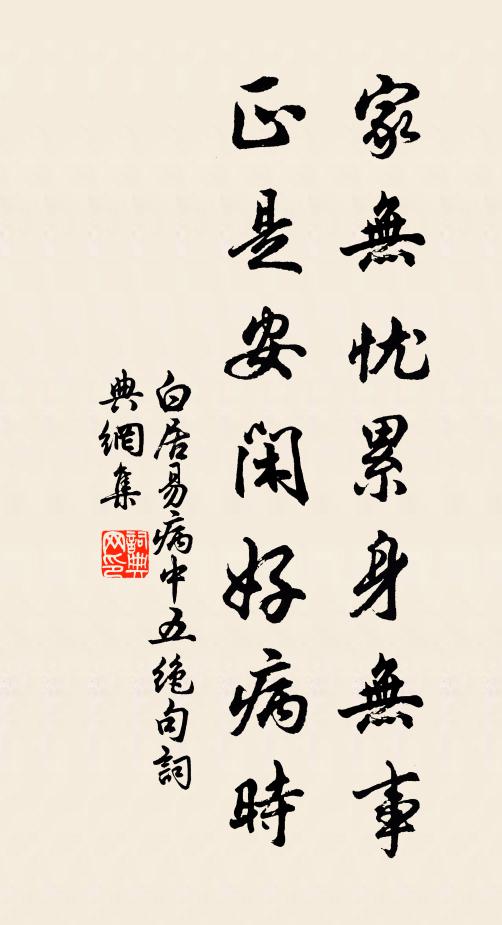 家無忧累身無事
正是安閑好病時
白居易病中五绝句詞
典網集
詞典网印